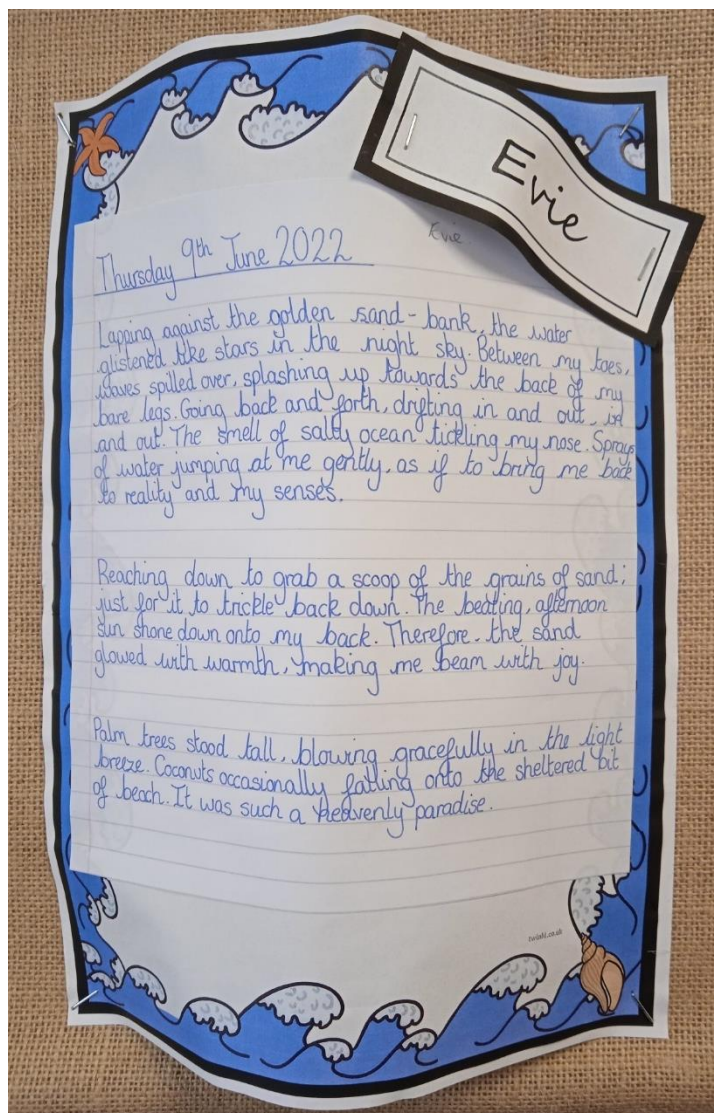 Evie
Evie
Thursday 9th June 2022
Lapping against the golden sand-bank, the water
glistened like stars in the night sky. Between my toes,
waves spilled over, splashing up towards the back of my
bare legs. Going back and forth, drifting in and out, in
and out. The smell of salty ocean tickling my nose. Sprays
of water jumping at me gently, as if to bring me back
to reality and my senses.
Reaching down to grab a scoop of the grains of sand;
just for it to trickle back down. The beating, afternoon
sun shone down onto my back. Therefore, the sand
glowed with warmth, making me beam with joy.
Palm trees stood tall, blowing gracefully in the light
breeze. Coconuts occasionally falling onto the sheltered bit
of beach. It was such a heavenly paradise.
twinkl.co.uk